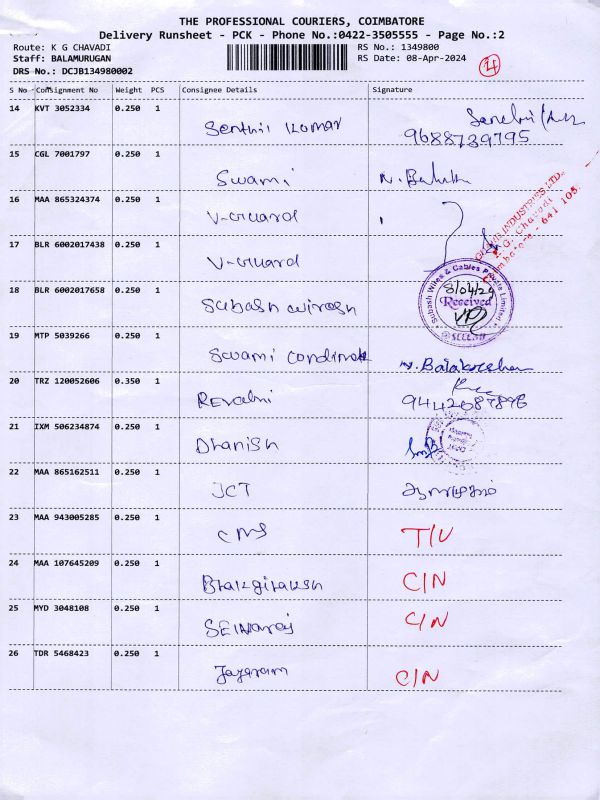 THE PROFESSIONAL COURIERS, COIMBATORE
Delivery Runsheet - PCK - Phone No.:0422-3505555 - Page No.:2
Route: K G CHAVADI
RS No.: 1349800
Staff: BALAMURUGAN
RS Date: 08-Apr-2024
DRS No.: DCJB134980002
4
S No Consignment No Weight PCS Consignee Details Signature
14 KVT 3052334 0.250 1 Senthil Kumar
9688739795
15 CGL 7001797 0.250 1 Swami
16 MAA 865324374 0.250 1 V-Guard
INDUSTRIES LTD.,
K.G. Chavadi
Coimbatore - 641 105
17 BLR 6002017438 0.250 1 V-Guard
18 BLR 6002017658 0.250 1 Subash wires
Subash Wires & Cables Private Limited
8/04/24
Received
19 MTP 5039266 0.250 1 Swami
20 TRZ 120052606 0.350 1 Revathi
21 IXM 506234874 0.250 1 Dhanish
22 MAA 865162511 0.250 1 JCT
23 MAA 943005285 0.250 1 CMS T/U
24 MAA 107645209 0.250 1 C/N
25 MYD 3048108 0.250 1 C/N
26 TDR 5468423 0.250 1 Jayaram C/N